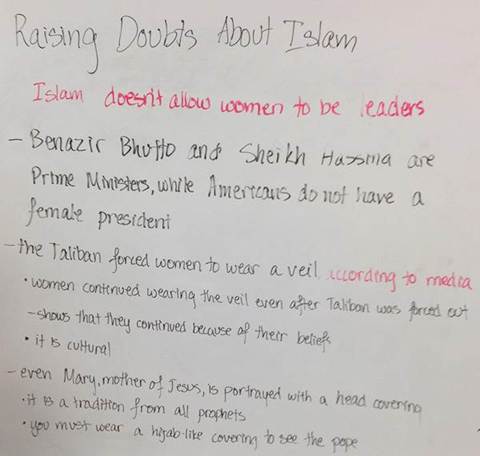 Raising Doubts About Islam
Islam doesn't allow women to be leaders
- Benazir Bhutto and Sheikh Hassina are
Prime Ministers, while Americans do not have a
female president
- the Taliban forced women to wear a veil according to media
• women continued wearing the veil even after Taliban was forced out
- shows that they continued because of their beliefs
• it is cultural
- even Mary, mother of Jesus, is portrayed with a head covering
• it is a tradition from all prophets
• you must wear a hijab-like covering to see the pope